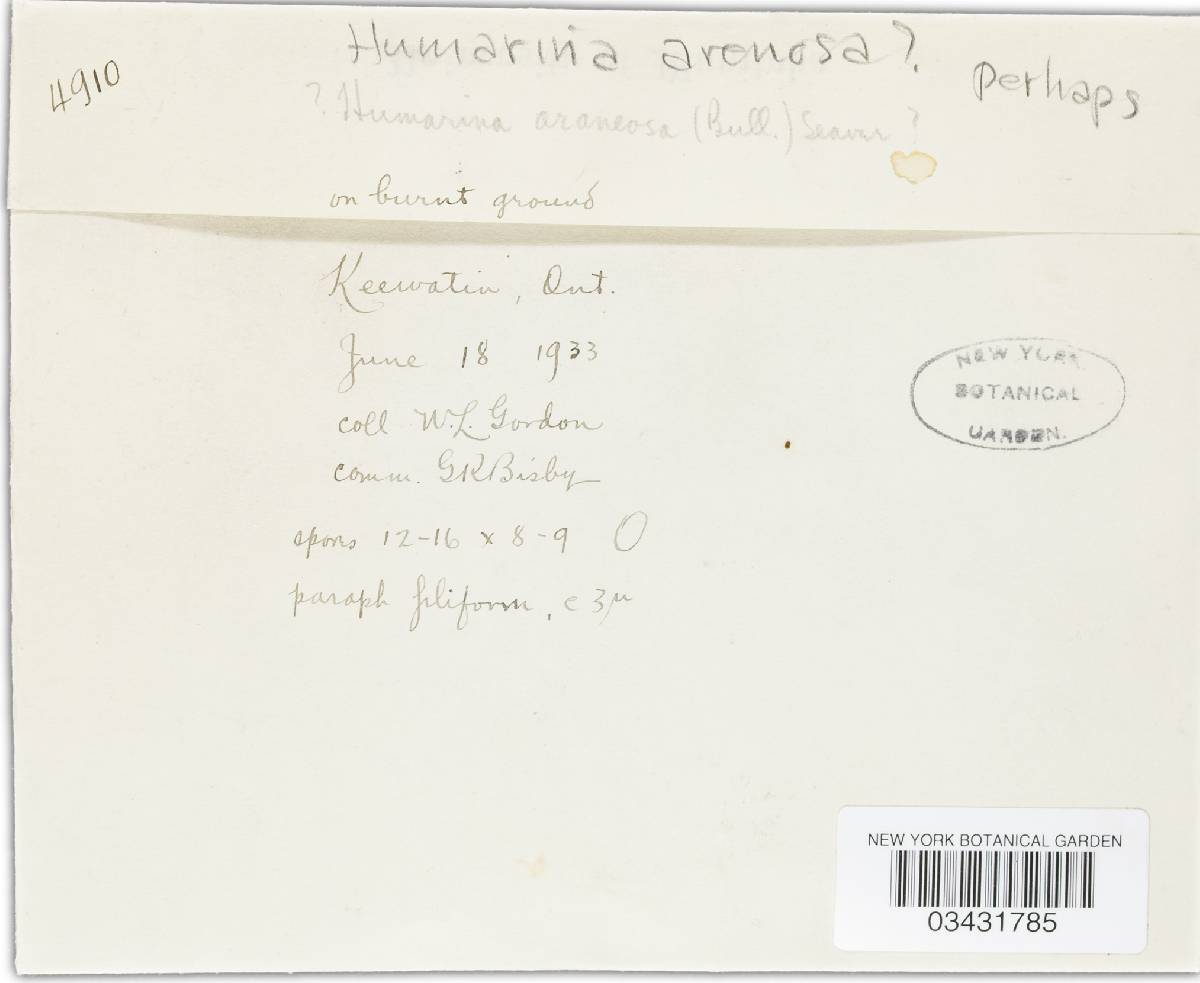 4910
Humarina arenosa? Perhaps
? Humarina araneosa (Bull.) Seaver ?
on burnt ground
Keewatin, Ont.
June 18 1933
coll W.L. Gordon
comm. GRBisby
spores 12-16 x 8-9 O
paraph filiform, c 3μ
NEW YORK
BOTANICAL
GARDEN.
NEW YORK BOTANICAL GARDEN
03431785